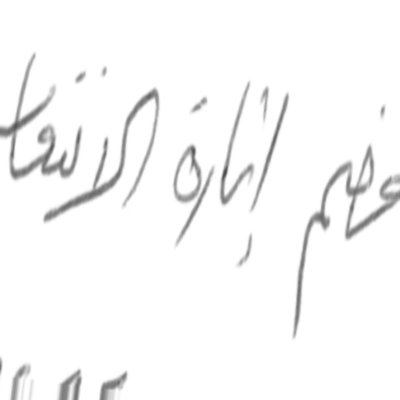 خضم إثارة الانتقا